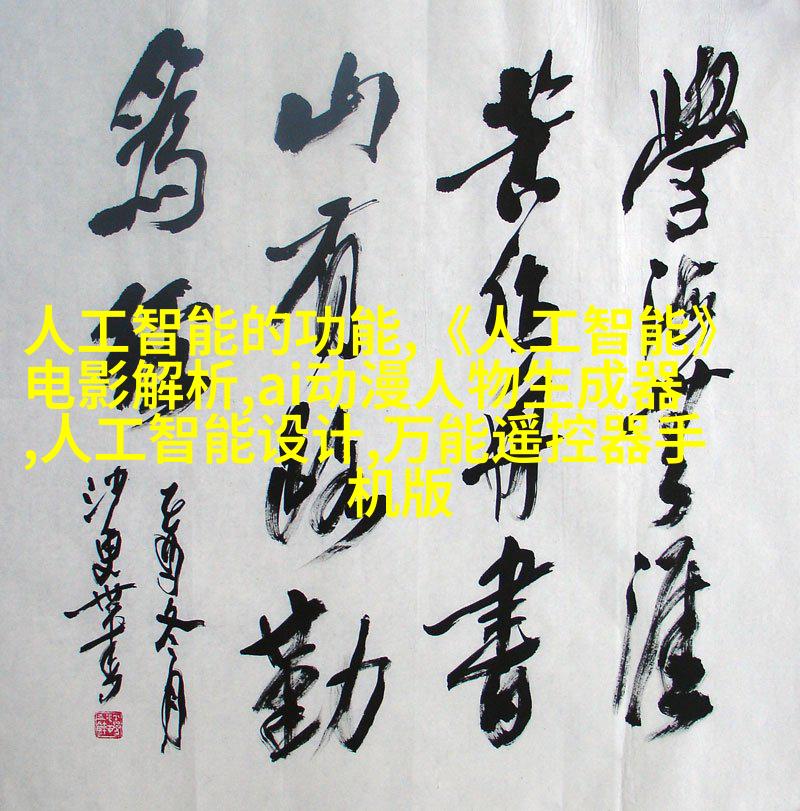 學海無涯
苦作舟書
山有路勤
為徑
乙酉冬月
人工智能的功能,《人工智能》
电影解析,ai动漫人物生成器
,人工智能设计,万能遥控器手
机版